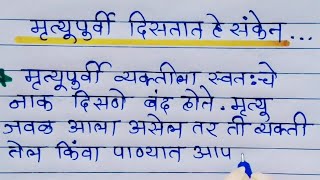 मृत्यूपूर्वी दिसतात हे संकेत ...
मृत्यूपूर्वी व्यक्तीला स्वतःचे
नाक दिसणे बंद होते. मृत्यू
जवळ आला असेल तर ती व्यक्ती
तेल किंवा पाण्यात आप